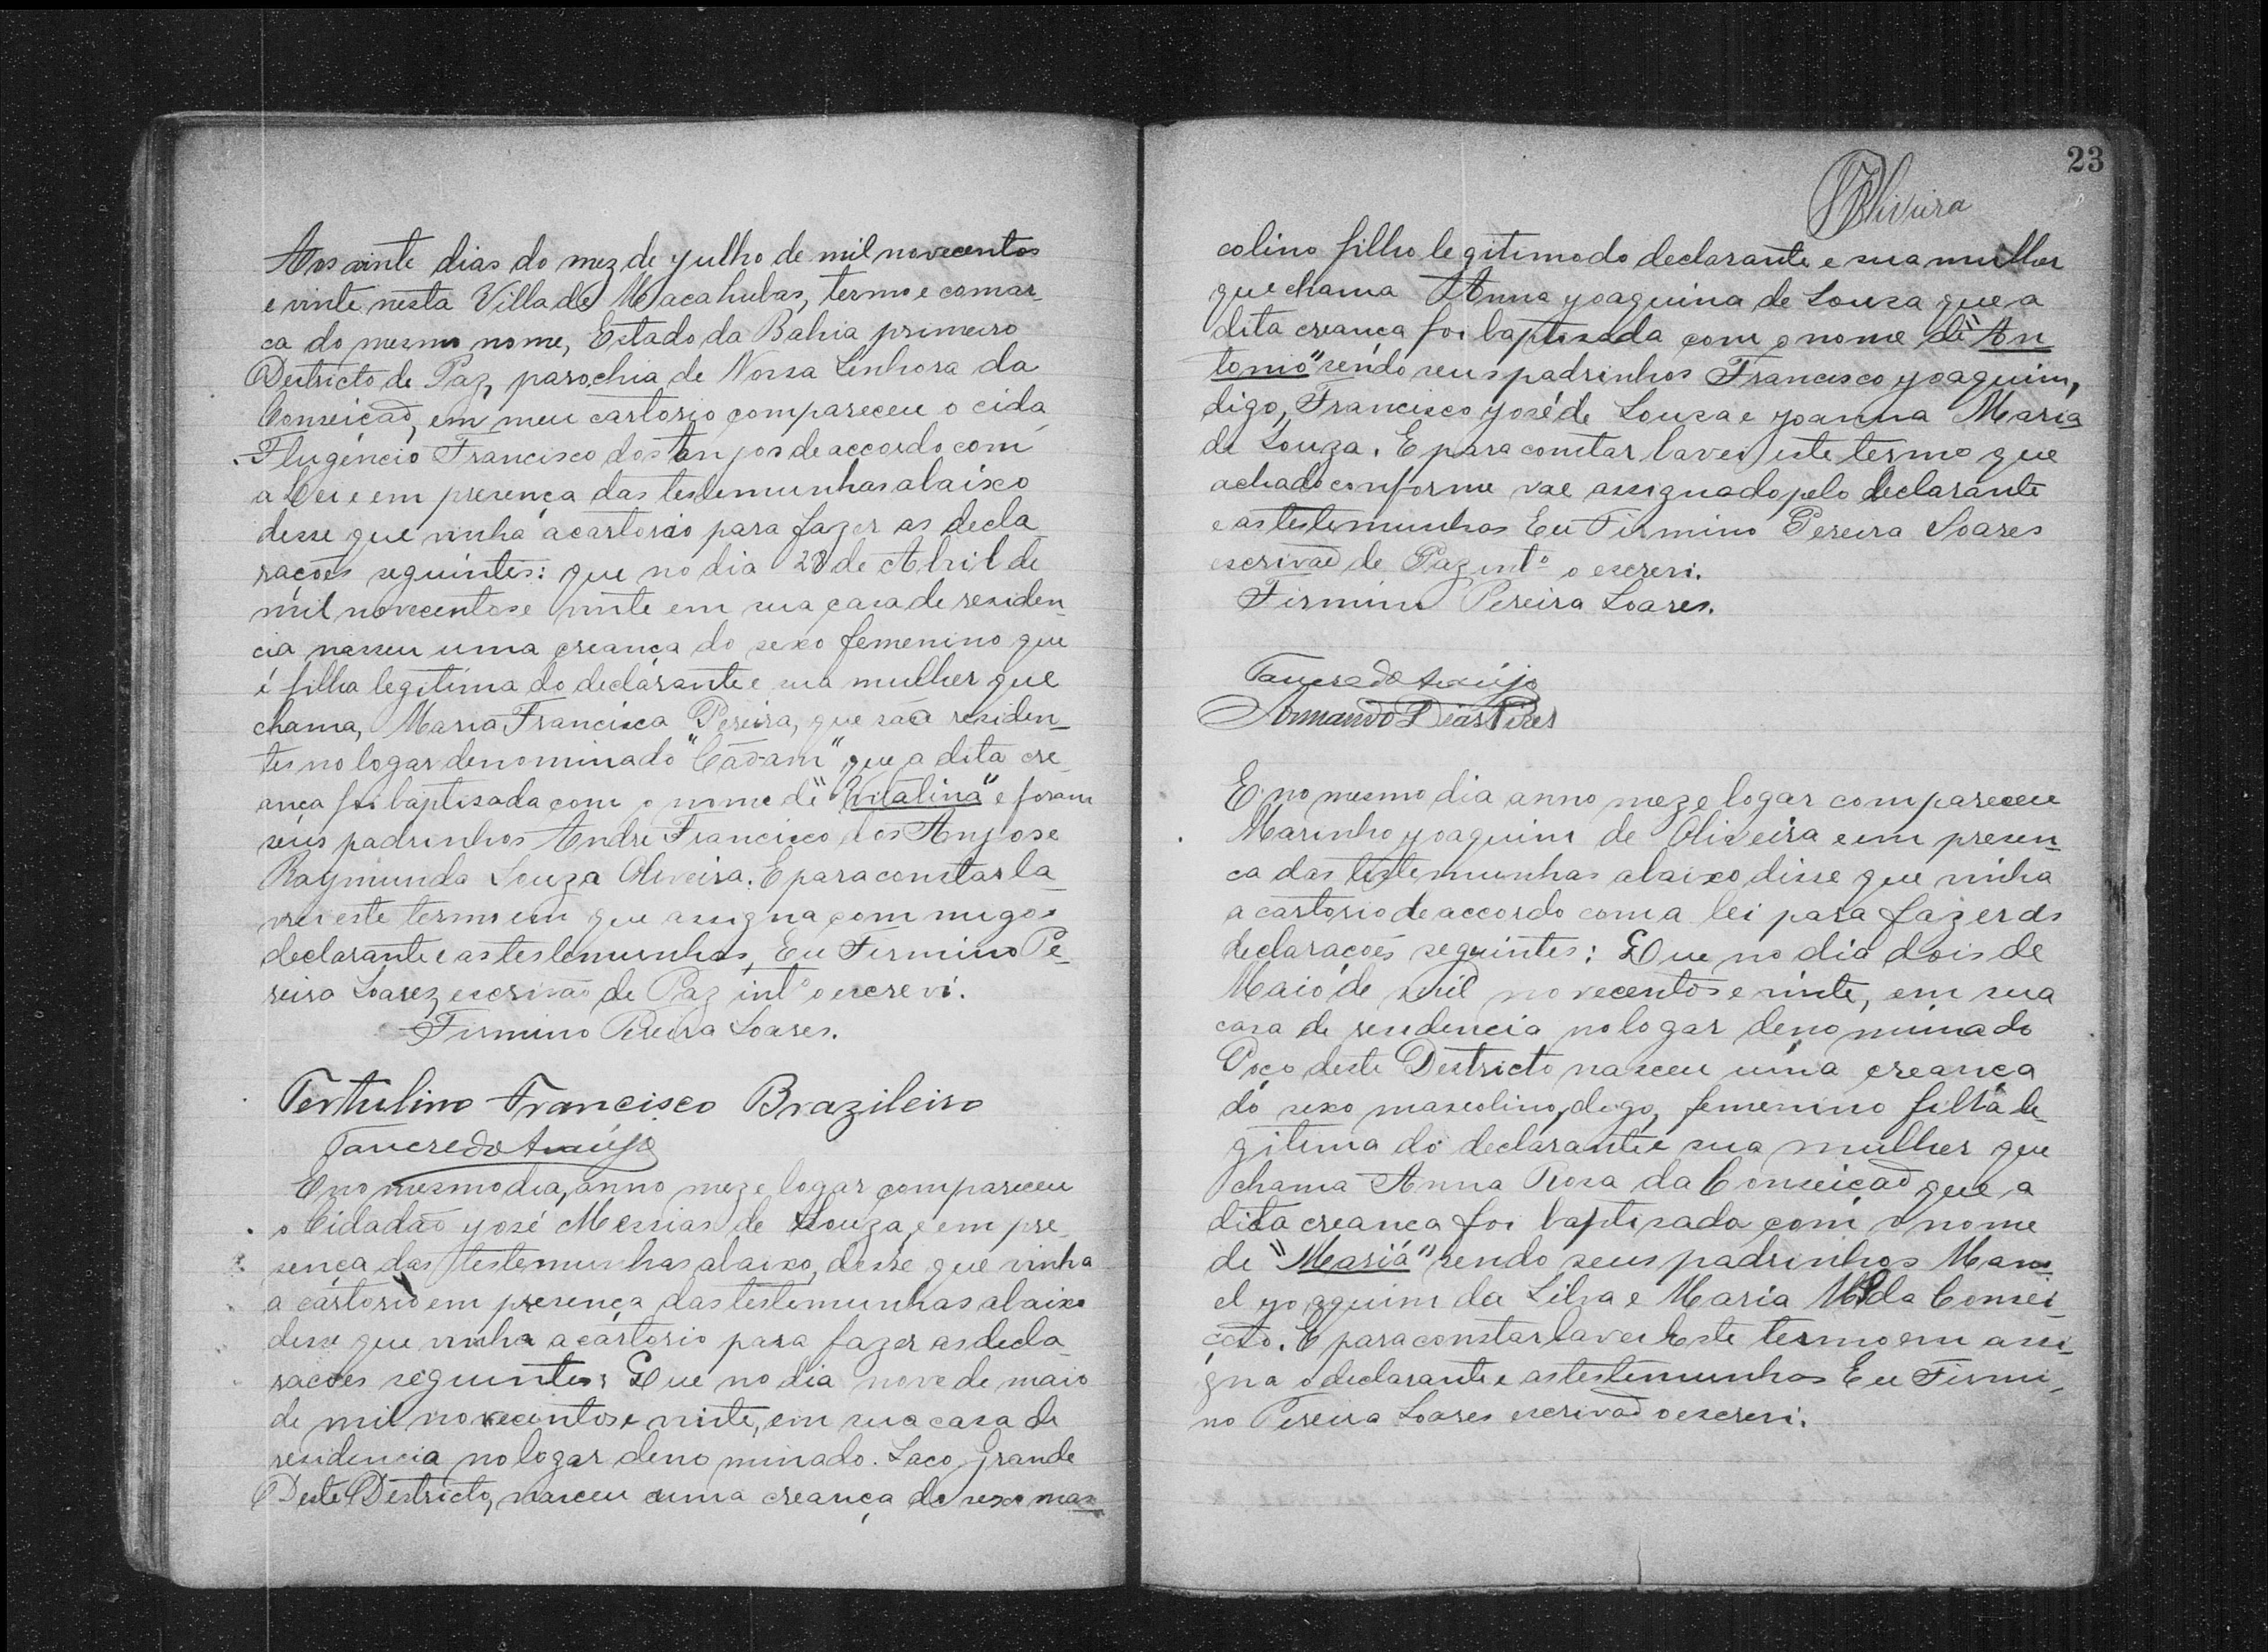 Aos vinte dias do mez de julho de mil novecentos
e vinte nesta Villa de Macahubas, termo e comar_
ca do mesmo nome, Estado da Bahia primeiro
Destricto de Paz, parochia de Nossa Senhora da
Conseicaõ, em meu cartorio compareceu o cida_
Flugencio Francisco dos Anjos de accordo com
a Lei e em presença das testemunhas abaixo
desse que vinha a cartorio para fazer as decla_
rações seguintes: que no dia 28 de Abril de
mil novecentos e vinte em sua casa de residen_
cia nasceu uma creança do sexo femenino que
é filha legitima do declarante e sua mulher que
chama, Maria Francisca Pereira, que saõ residen_
tes no logar denominado " que a dita cre_
ança foi baptisada com o nome de "Vitalina" e foram
seus padrinhos Andre Francisco dos Anjos e
Raymunda Souza Oliveira. E para constar la_
vrei este termo em que assigna commigo o
declarante e as testemunhas, Eu Firmino Pe_
reira Soares, escrivaõ de Paz intº o escrevi.
Firmino Pereira Soares.
Tertulino Francisco Brazileiro
Tancredo Araújo
E no mesmo dia, anno mez e logar compareceu
o Cidadaõ José Messias de Souza, e em pre_
sença das testemunhas abaixo, desse que vinha
a cartorio em presença das testemunhas abaixo
desse que vinha a cartorio para fazer as decla_
racões seguintes: Que no dia nove de maio
de mil novecentos e vinte, em sua casa de
residencia no logar denominado. Saco Grande
Deste Destricto, nasceu uma creança do sexo mas_
23
Oliveira
colino filho legitimo do declarante e sua mulher
que chama Anna Joaquina de Souza que a
dita creança foi baptisada com o nome de "An
tonio" sendo seus padrinhos Francisco Joaquim,
digo, Francisco José de Souza e Joanna Maria
de Souza. E para constar lavei este termo que
achado conforme vae assignado pelo declarante
e as testemunhas Eu Firmino Pereira Soares
escrivaõ de Paz intº o escrevi.
Firmino Pereira Soares.
Tancredo Araújo
Armando Dias Pires
E no mesmo dia anno mez e logar compareceu
Marinho Joaquim de Oliveira e em presen_
ca das testemunhas abaixo disse que vinha
a cartorio de accordo com a lei para fazer as
declaracões seguintes: Que no dia dois de
Maio de mil novecentos e vinte, em sua
casa de residencia no logar denominado
Poço deste Destricto nasceu uma creança
do sexo mascolino, digo, femenino filha le_
gitima do declarante e sua mulher que
chama Anna Rosa da Conseiçaõ que a
dita creança foi baptisada com o nome
de "Maria" sendo seus padrinhos Mano_
el Joaquim da Silva e Maria da Consei_
çaõ. E para constar lavei este termo em assi_
gna o declarante e as testemunhas Eu Firmi_
no Pereira Soares escrivaõ o escrevi.